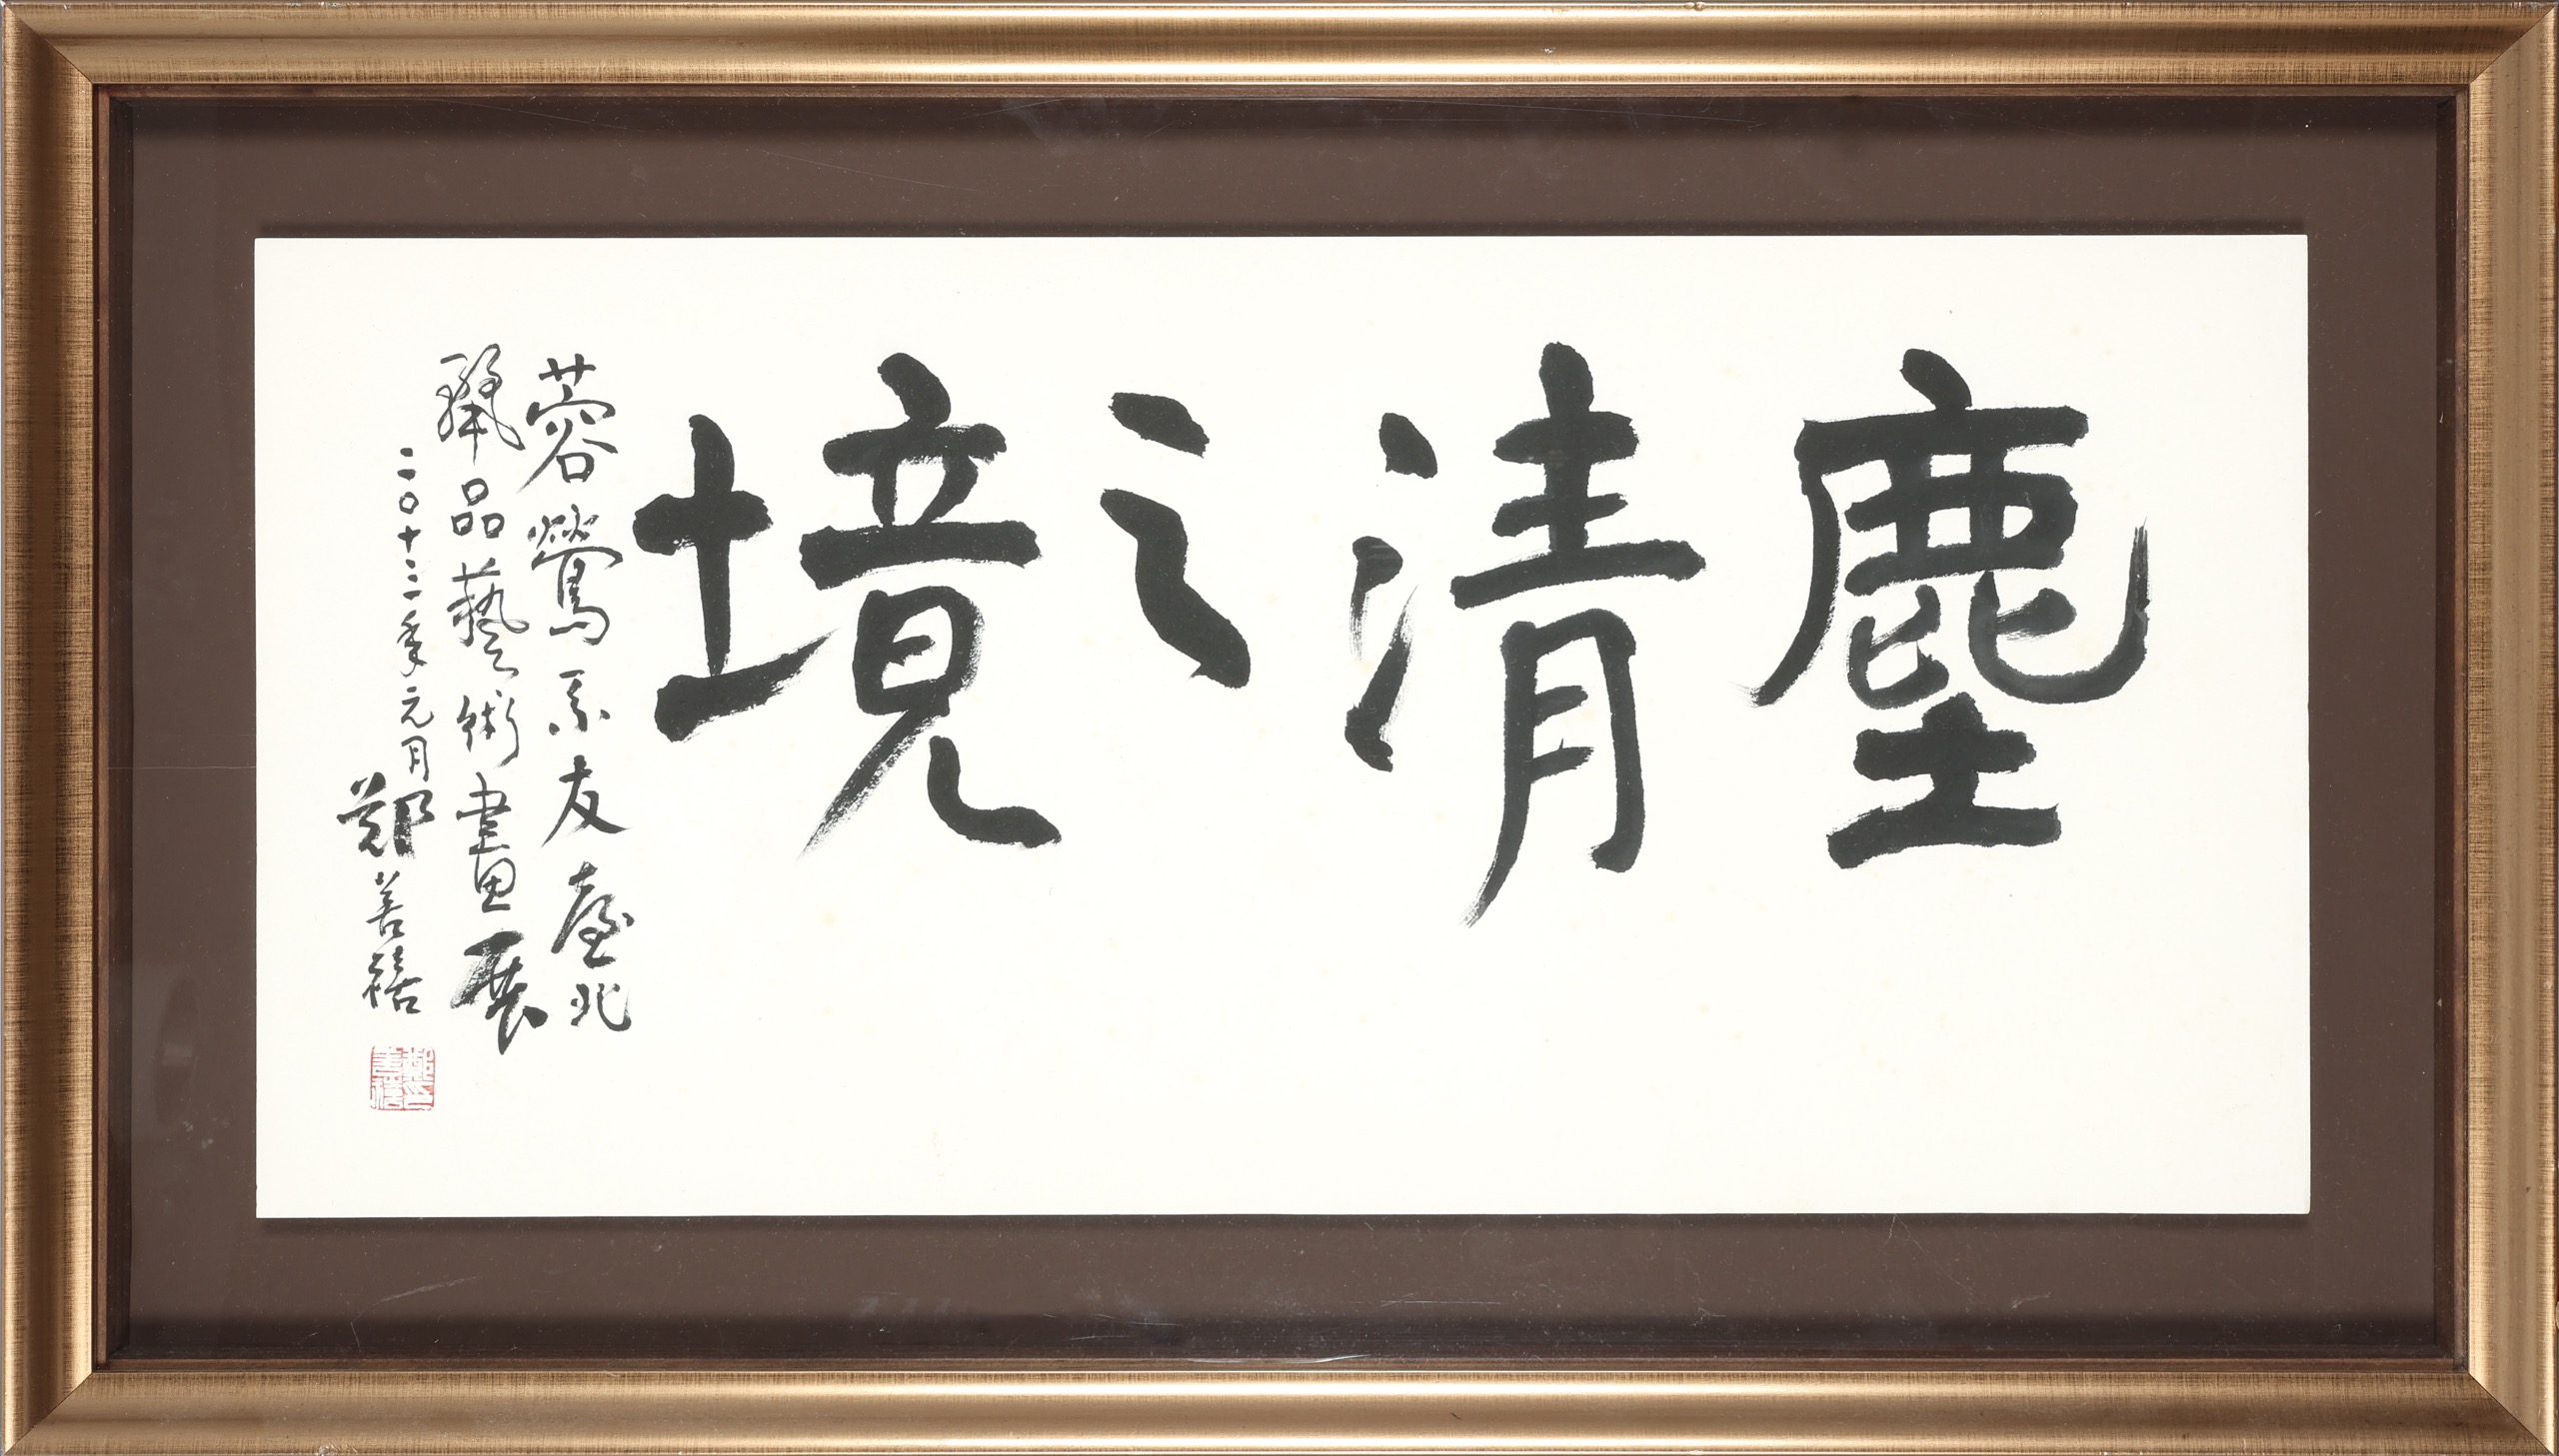 塵清之境
蓉鶯系友臺北
珮品藝術畫展
二〇十二年元月
鄭善禧
鄭善禧